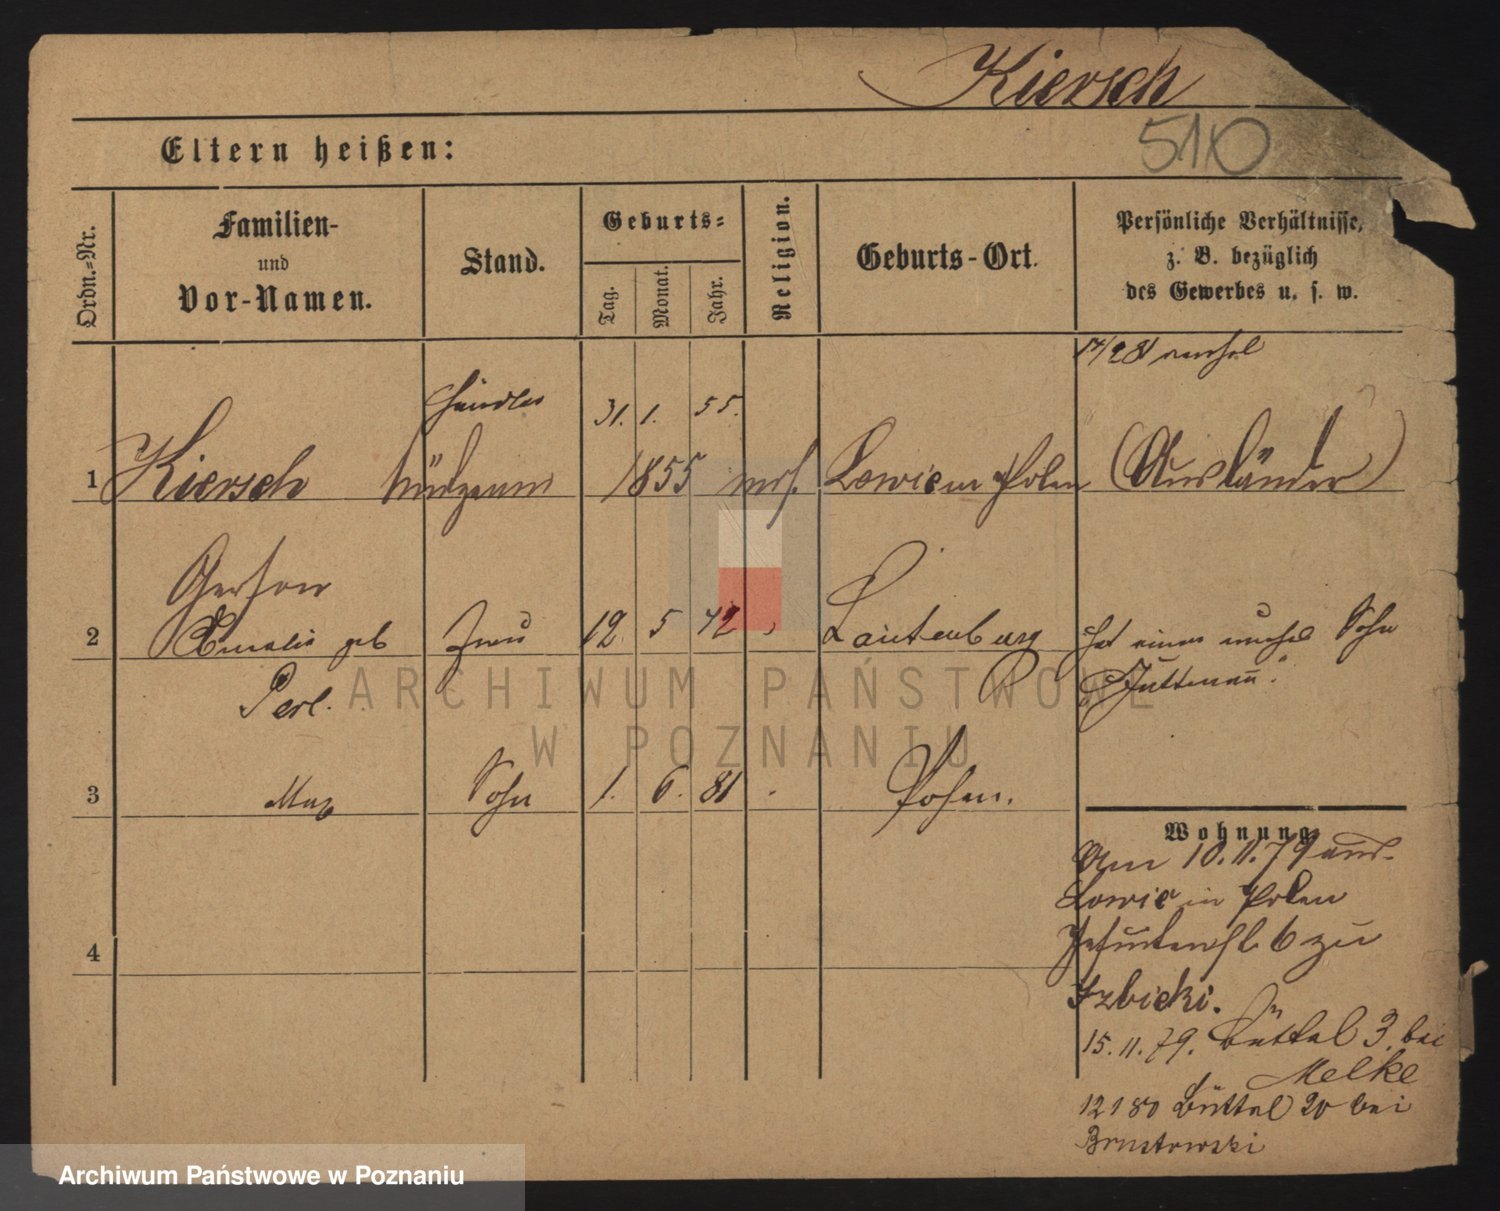 Kiersch
510
Eltern heißen:
Ordn.-Nr.
Familien-
und
Vor-Namen.
Stand.
Geburts-
Tag.
Monat.
Jahr.
Religion.
Geburts-Ort.
Persönliche Verhältnisse,
z. B. bezüglich
des Gewerbes u. s. w.
Händler
31. 1. 55.
1 Kiersch 1855 mos. Lowic in Polen (Ausländer)
Gerson
2 geb Frau 12. 5 Lautenburg hat einen Sohn
Perl.
3 Max Sohn 1. 6. 81 Posen.
4
Wohnung
Am 10. 11. 79 aus
Lowic in Polen
6 zu
Izbicki.
15. 11. 79. Büttel 3. bei
Melke
12 1 80 Büttel 20 bei
ARCHIWUM PAŃSTWOWE
W POZNANIU
Archiwum Państwowe w Poznaniu